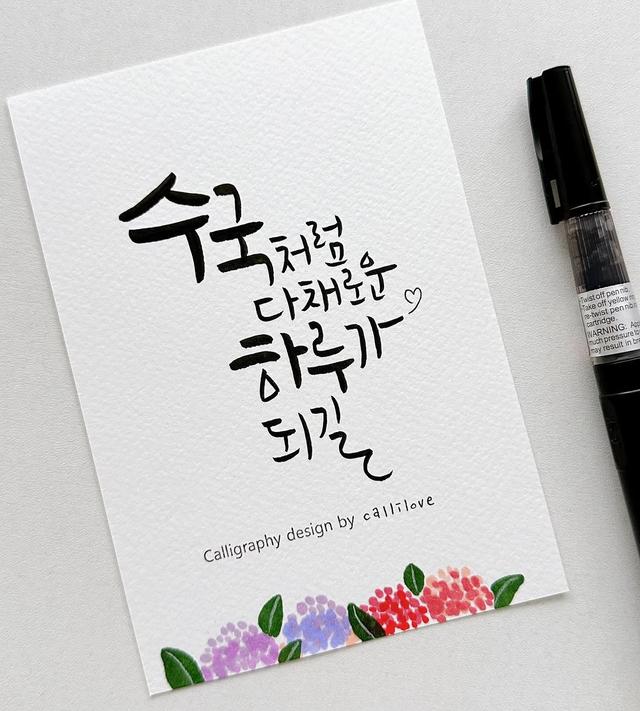 수국처럼
다채로운
하루가
되길
Calligraphy design by callilove
-Twist off pen nib.
-Take off yellow
re-twist pen nib
cartridge.
WARNING:
much pressure
may result in